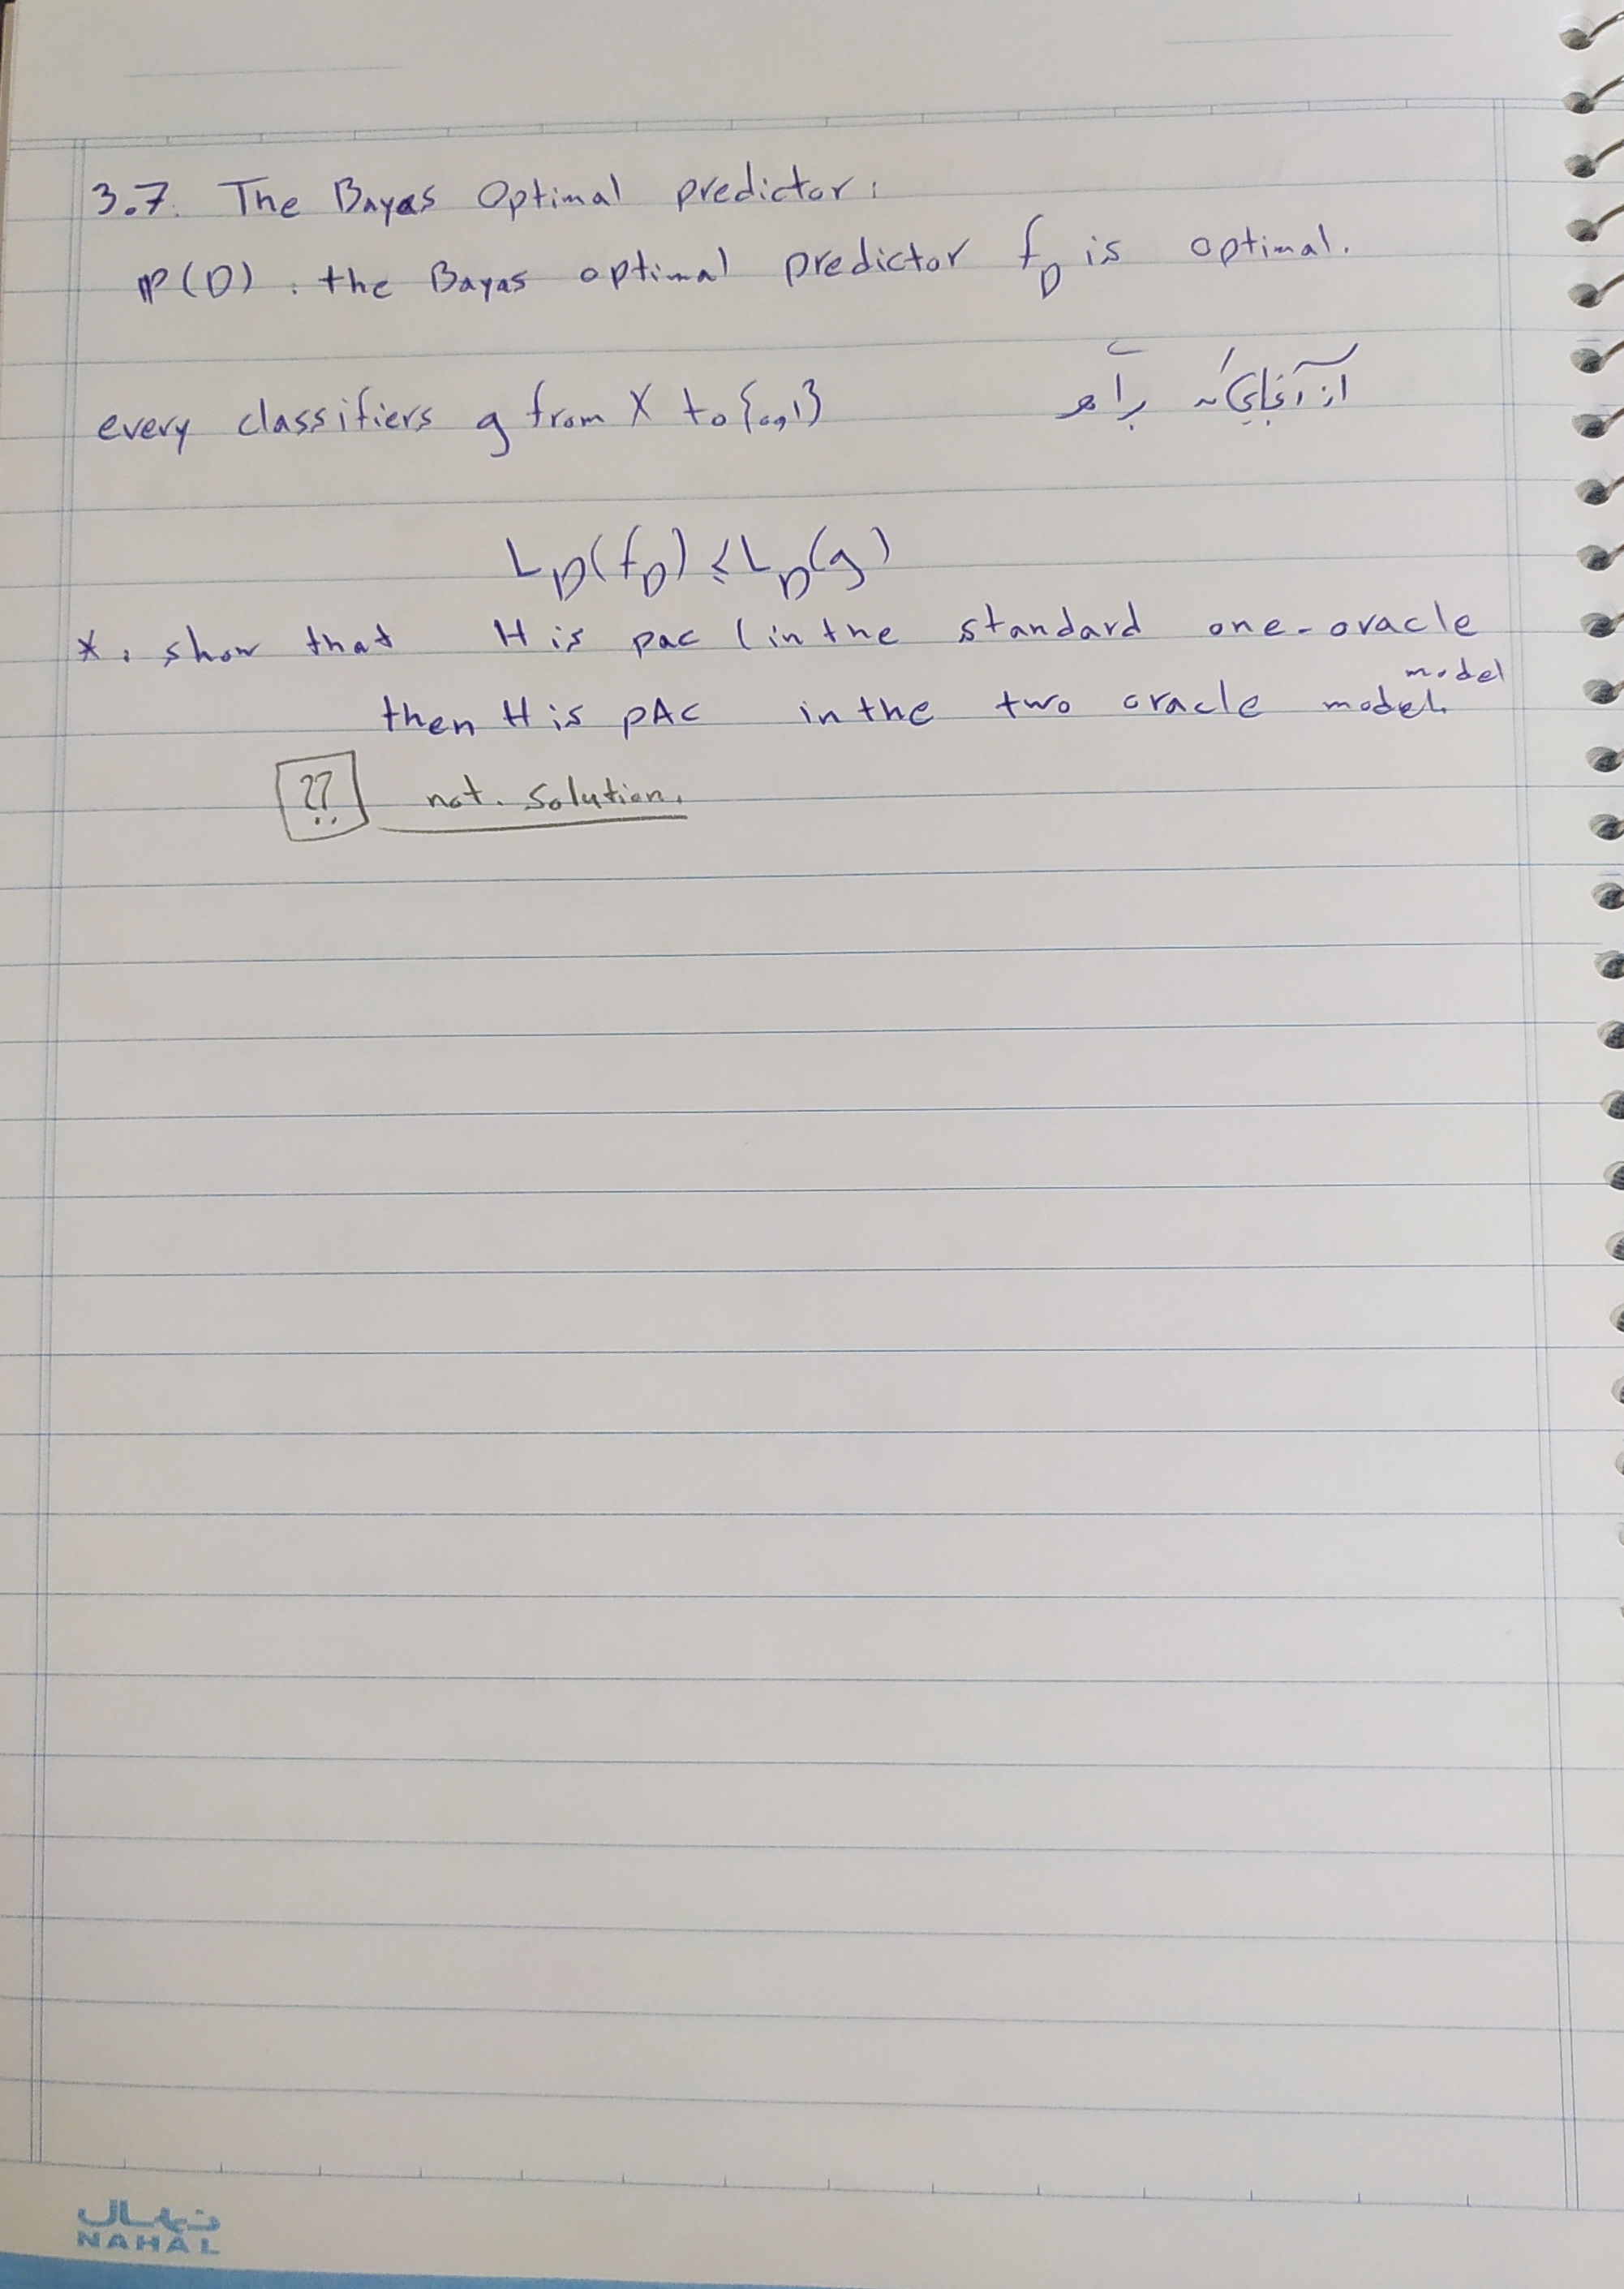 3.7. The Bayes Optimal predictor:
P(D). the Bayas optimal predictor f_D is optimal.
every classifiers g from X to {0,1} از آنجایی که برا هر
L_D(f_D) ≤ L_D(g)
*. show that H is pac (in the standard one-oracle model
then H is PAC in the two oracle model.
?? not. solution.
نهال
NAHAL